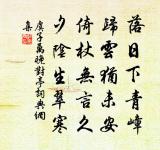 落日下青嶂
歸雲猶未安
倚杖無言久
夕陰生翠寒
庚子萬晚對亭詞典網
集